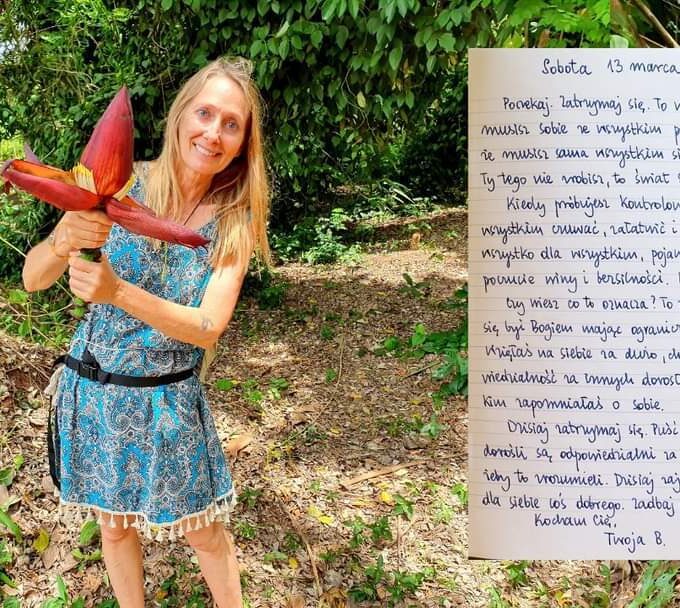 Sobota 13 marca
Poczekaj. Zatrzymaj się. To
musisz sobie ze wszystkim
że musisz sama wszystkim
Ty tego nie zrobisz, to świat
Kiedy próbujesz
wszystkim czuwać, załatwić i
wszystko dla wszystkim,
poczucie winy i bezsilności.
Czy wiesz co to oznacza? To
się być Bogiem mając
Wzięłaś na siebie za dużo,
za innych
kim zapomniałaś o sobie.
Dzisiaj zatrzymaj się. Puść
dorośli są odpowiedzialni za
żeby to zrozumieli. Dzisiaj
dla siebie coś dobrego. Zadbaj
Kocham Cię,
Twoja B.